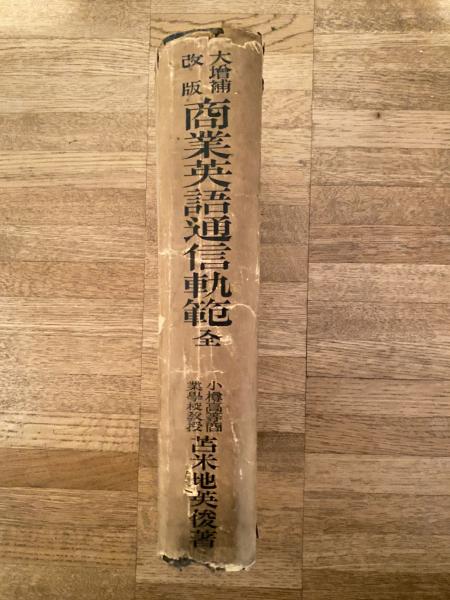 大增補
改版
商業英語通信軌範 全
小樽高等商
業學校教授
苫米地英俊著